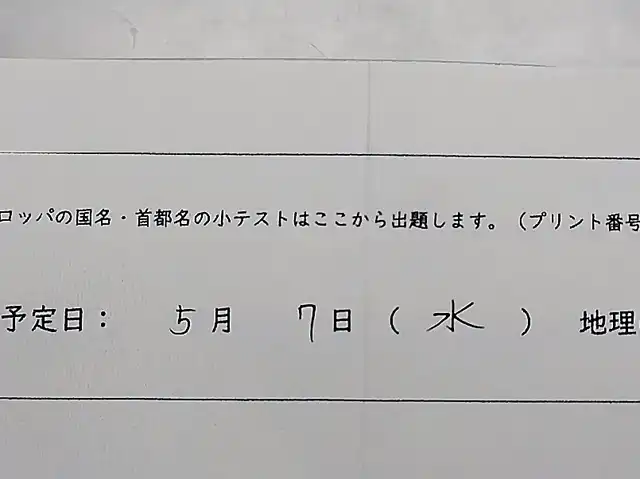 ロッパの国名・首都名の小テストはここから出題します。（プリント番号
予定日： 5月 7日（ 水 ） 地理